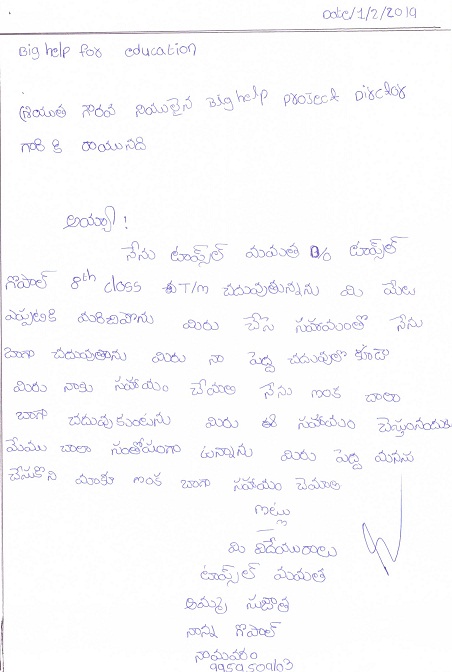 Date/1/2/2019
Big help for education
శ్రీయుత గౌరవ నియులైన Big help project Dirctor
గారి కి రాయునది
అయ్యా !
నేను టాప్స్‌ల్ మమత D/o టాప్స్‌ల్
గోపాల్ 8th class T/m చదువుతున్నను మి మేలు
ఎప్పటికి మరిచిపోను మిరు చేసె సహయంతొ నేను
బాగా చదువుతాను మిరు నా పెద్ద చదువులొ కూడా
మిరు నాకు సహాయం చేయాలి నేను ఇంక చాలా
బాగా చదువుకుంటును మిరు ఈ సహాయం చెస్తుంనందుకు
మేము చాలా సంతోషంగా ఉన్నాను మిరు పెద్ద మనసు
చేసుకొని మాకు ఇంక బాగా సహయం చెయాలి
ఇట్లు
మి విదేయురాలు
టాప్స్‌ల్ మమత
అమ్మ సుజాత
నాన్న గొపాల్
నామవరం
9959509103